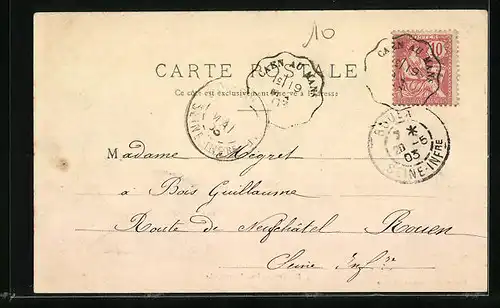 10
CARTE POSTALE
Ce côté est exclusivement réservé à l'adresse
CAEN AU MANS
19
03
CAEN AU MANS
19
10
MAI
ROUEN
20 -5
03
SEINE-INFRE
Madame Mégret
à Bois Guillaume
Route de Neufchâtel Rouen
Seine Infre